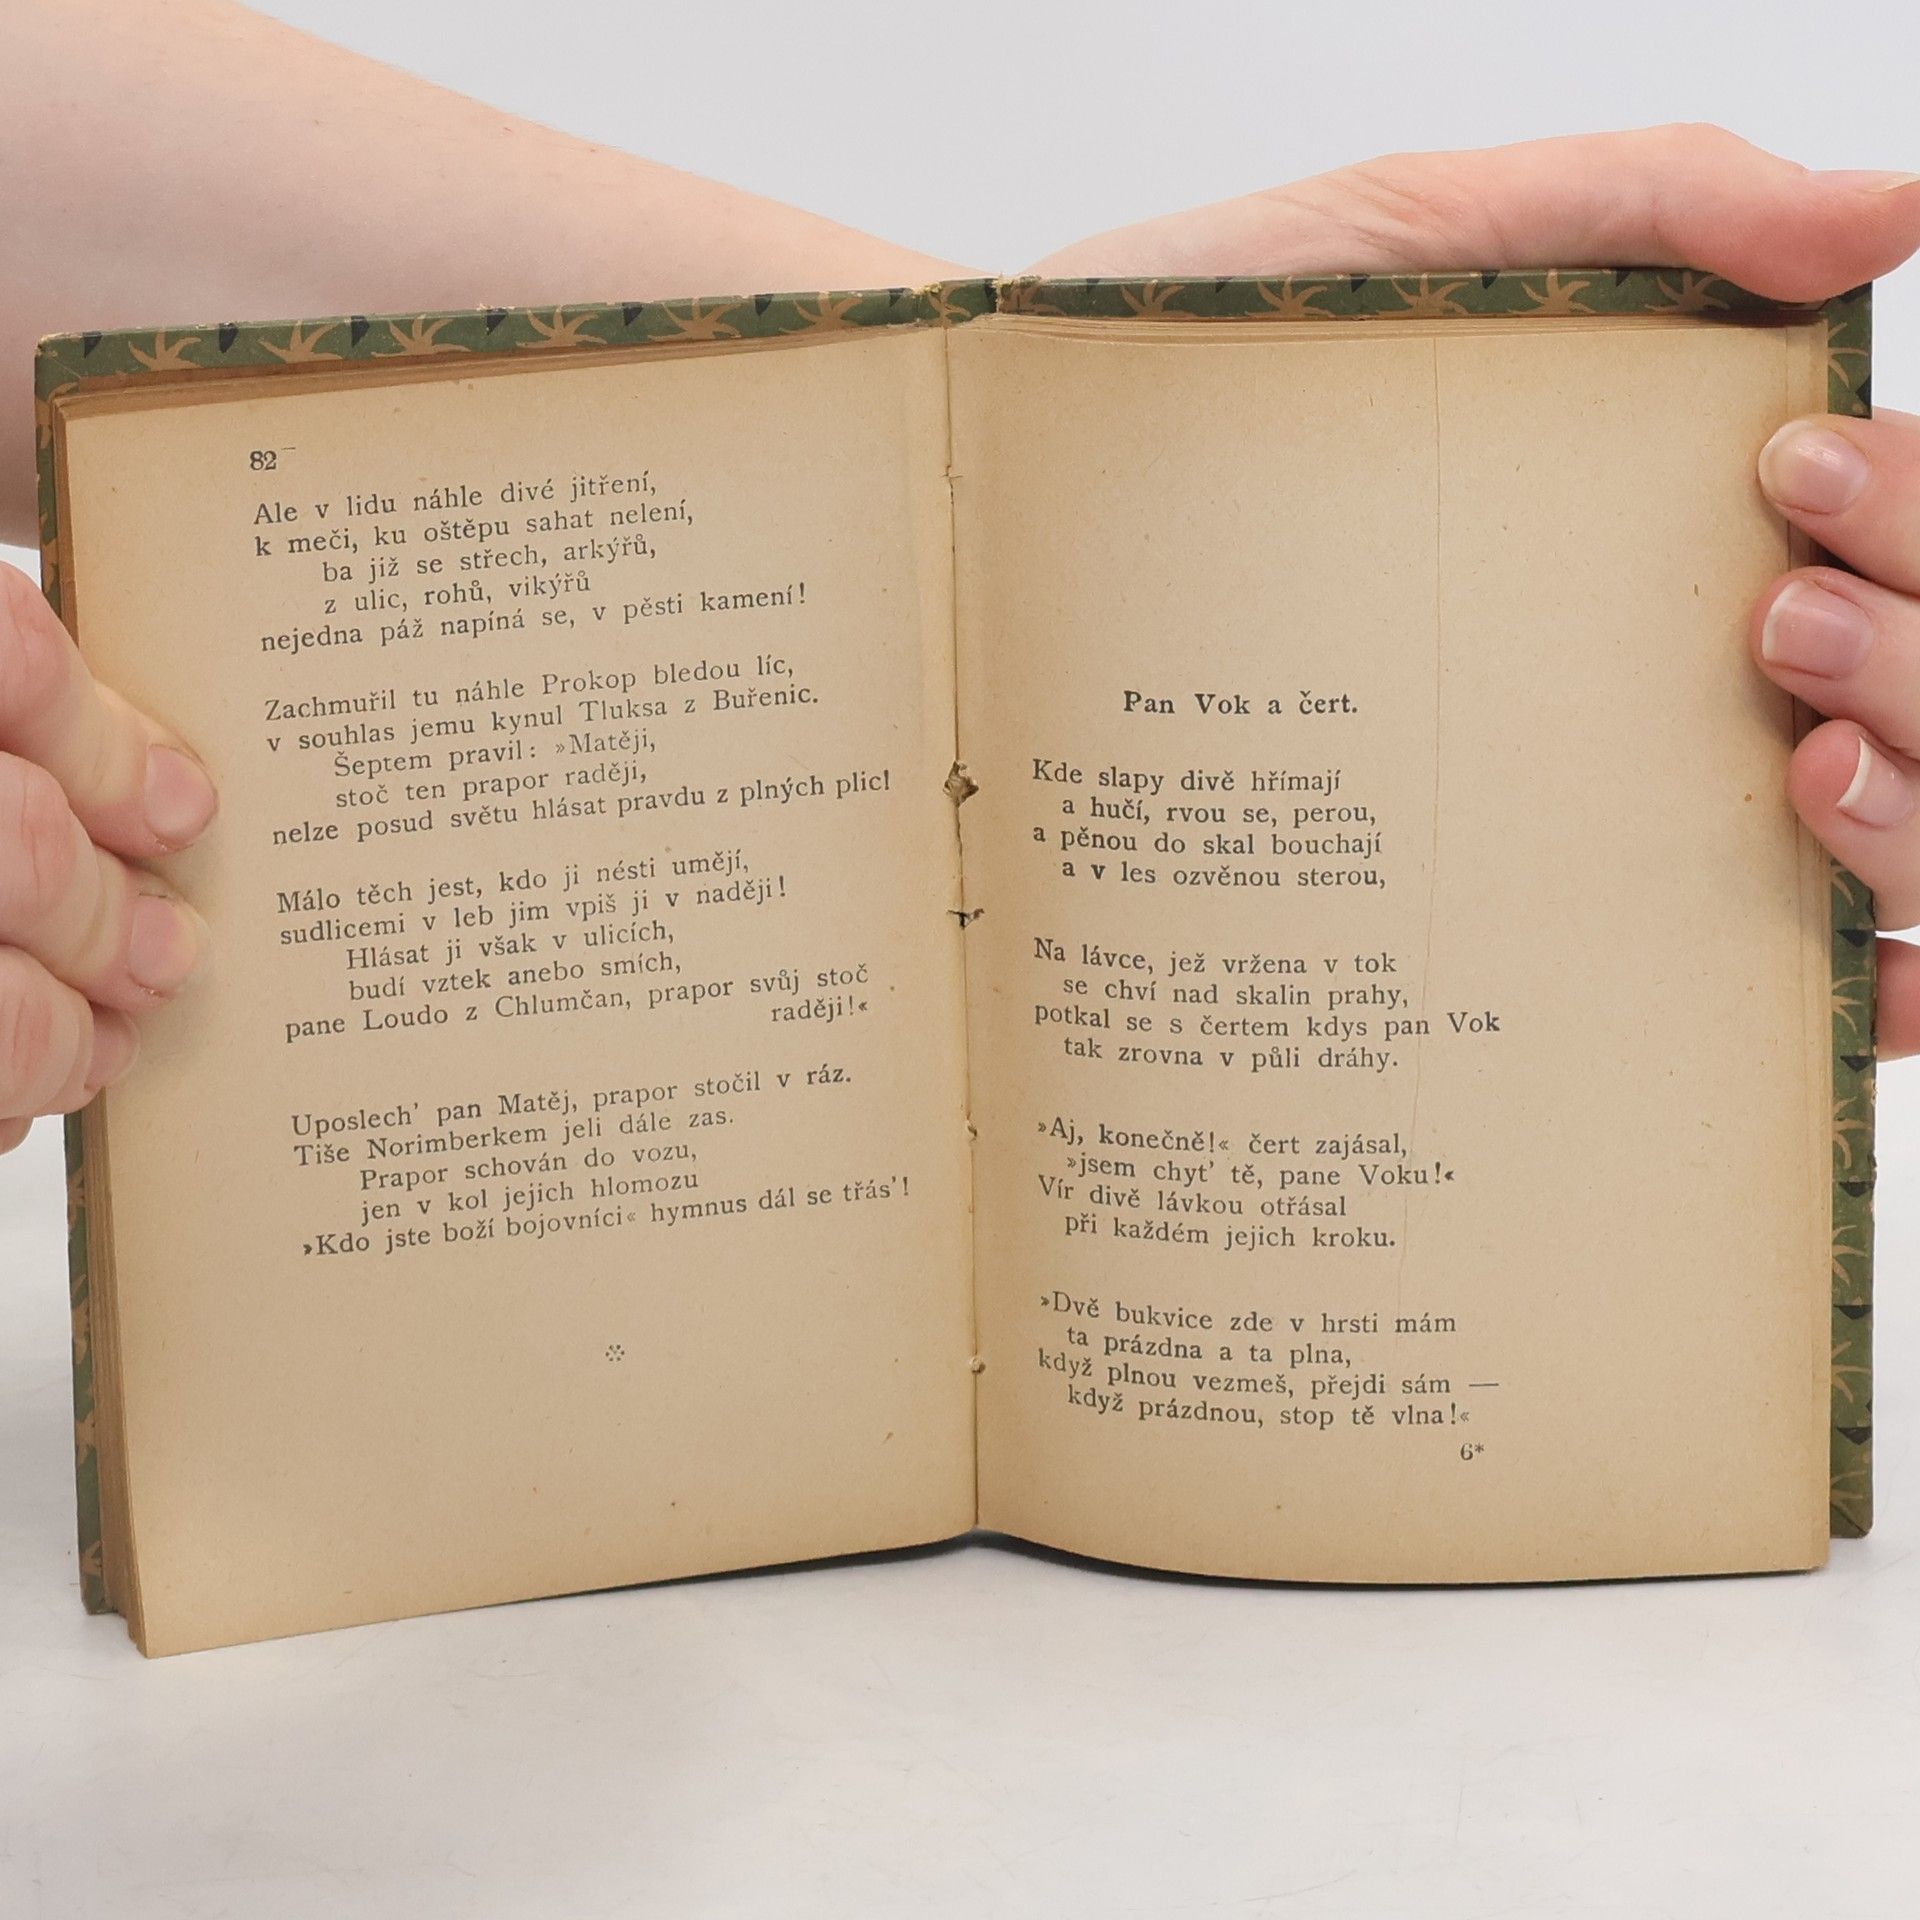 82
Ale v lidu náhle divé jitření,
k meči, ku oštěpu sahat nelení,
ba již se střech, arkýřů,
z ulic, rohů, vikýřů
nejedna páž napíná se, v pěsti kamení!
Zachmuřil tu náhle Prokop bledou líc,
v souhlas jemu kynul Tluksa z Buřenic.
Šeptem pravil: »Matěji,
stoč ten prapor raději,
nelze posud světu hlásat pravdu z plných plic!
Málo těch jest, kdo ji nésti umějí,
sudlicemi v leb jim vpiš ji v naději!
Hlásat ji však v ulicích,
budí vztek anebo smích,
pane Loudo z Chlumčan, prapor svůj stoč
raději!«
Uposlech’ pan Matěj, prapor stočil v ráz.
Tiše Norimberkem jeli dále zas.
Prapor schován do vozu,
jen v kol jejich hlomozu
»Kdo jste boží bojovníci« hymnus dál se třás’!
Pan Vok a čert.
Kde slapy divě hřímají
a hučí, rvou se, perou,
a pěnou do skal bouchají
a v les ozvěnou sterou,
Na lávce, jež vržena v tok
se chví nad skalin prahy,
potkal se s čertem kdys pan Vok
tak zrovna v půli dráhy.
»Aj, konečně!« čert zajásal,
»jsem chyt’ tě, pane Voku!«
Vír divě lávkou otřásal
při každém jejich kroku.
»Dvě bukvice zde v hrsti mám
ta prázdna a ta plna,
když plnou vezmeš, přejdi sám —
když prázdnou, stop tě vlna!«
6*